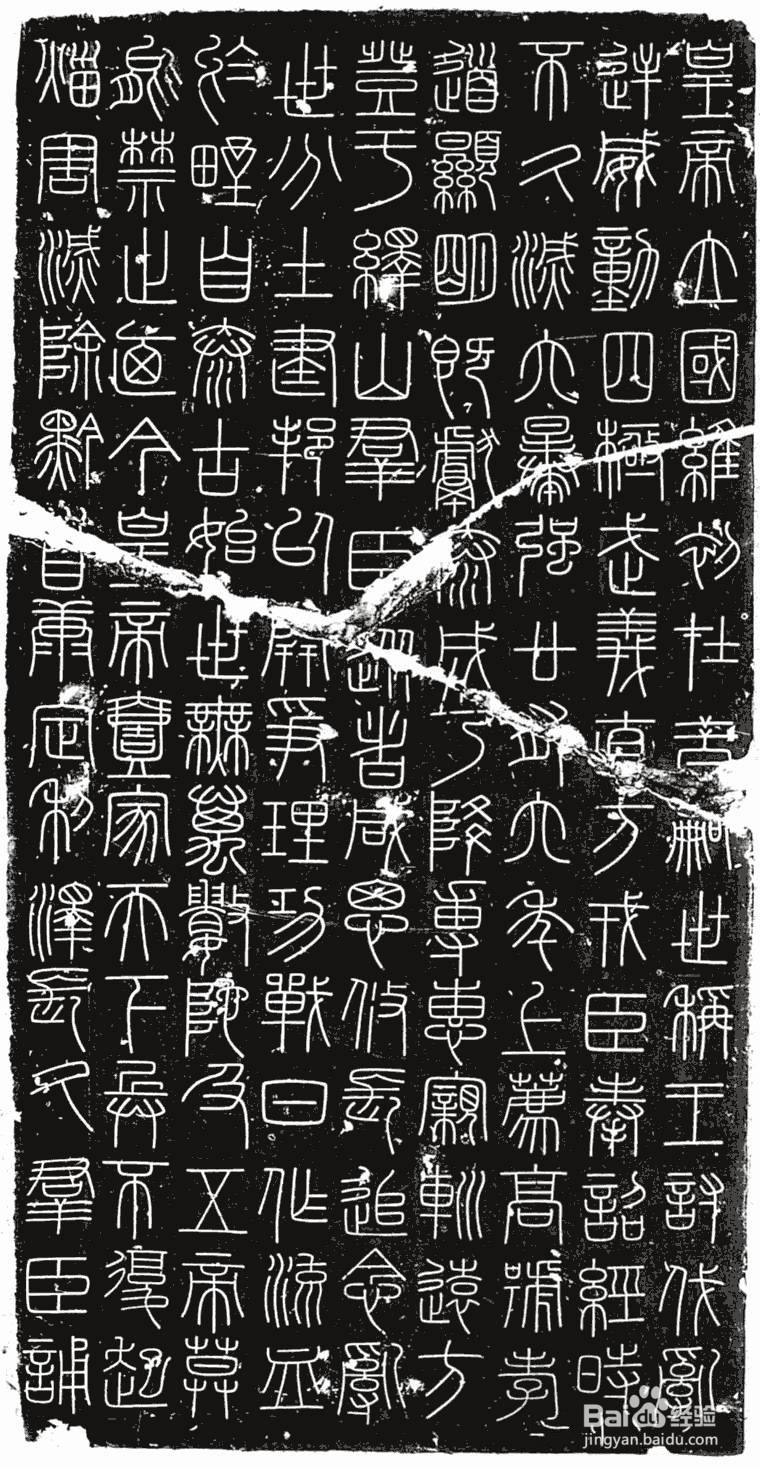 皇帝立國維初在昔嗣世稱王討伐亂
逆威動四極武義直方戎臣奉詔經時
不久滅六暴強廿有六年上薦高號孝
道顯明既獻泰成乃降專惠親巡遠方
登于繹山羣臣從者咸思攸長追念亂
世分土建邦以開爭理功戰日作流血
於野自泰古始世無萬數陀及五帝莫
能禁止廼今皇帝壹家天下兵不復起
災害滅除黔首康定利澤長久羣臣誦
Baidu经验
jingyan.baidu.com